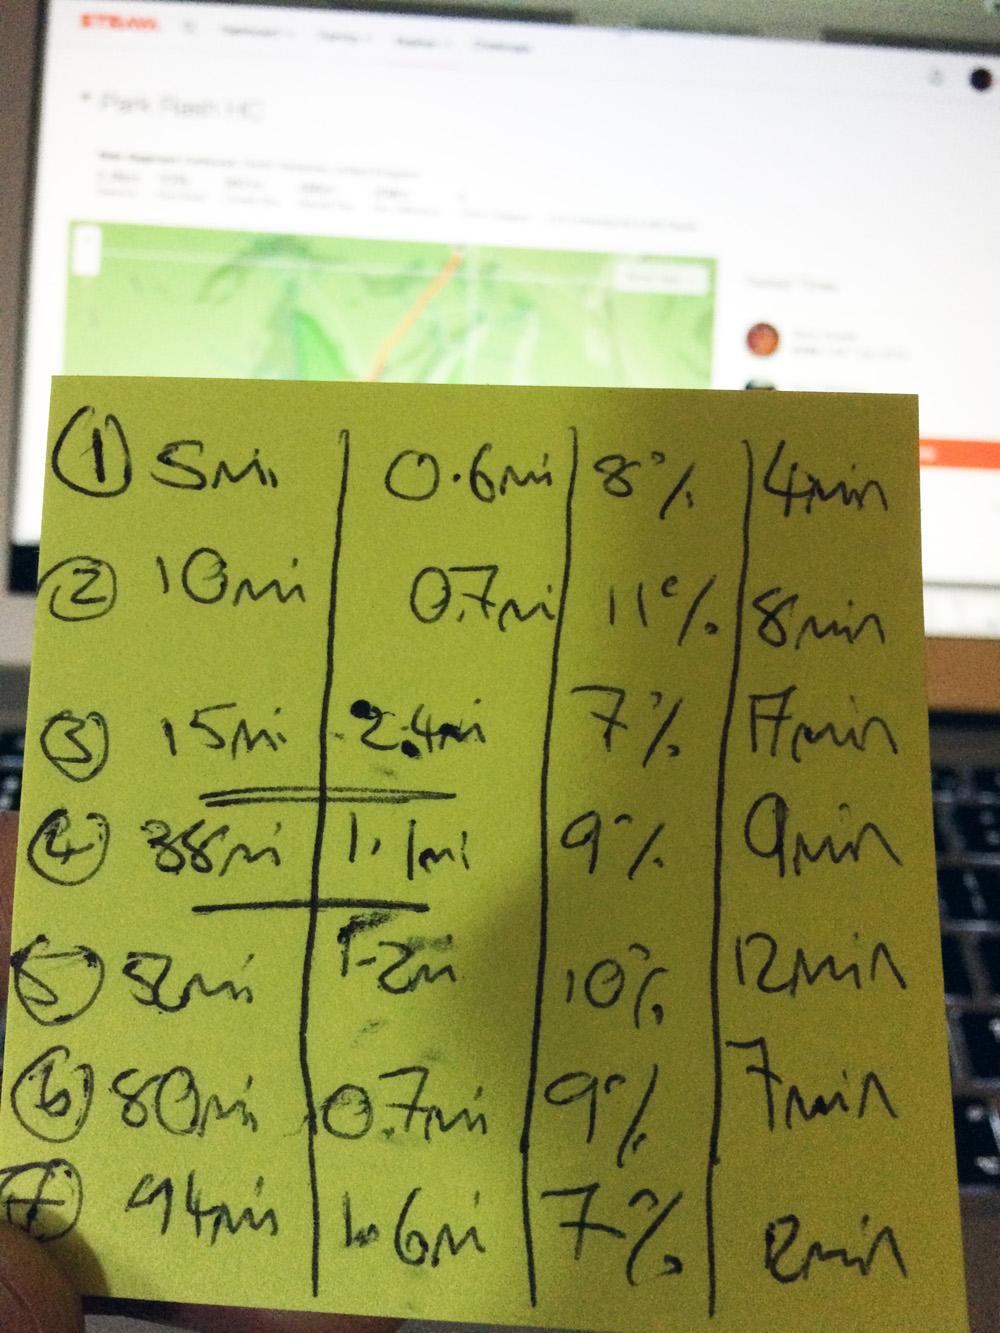 STRAVA
Park Rash HC
① 5mi 0.6mi 8% 4min
② 10mi 0.7mi 11% 8min
③ 15mi 2.4mi 7% 17min
④ 38mi 1.1mi 9% 9min
⑤ 52mi 1.2mi 10% 12min
⑥ 80mi 0.7mi 9% 7min
⑦ 94mi 1.6mi 7% min